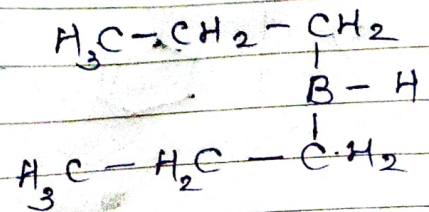 H₃C-CH₂-CH₂
|
B-H
|
H₃C-H₂C-C·H₂